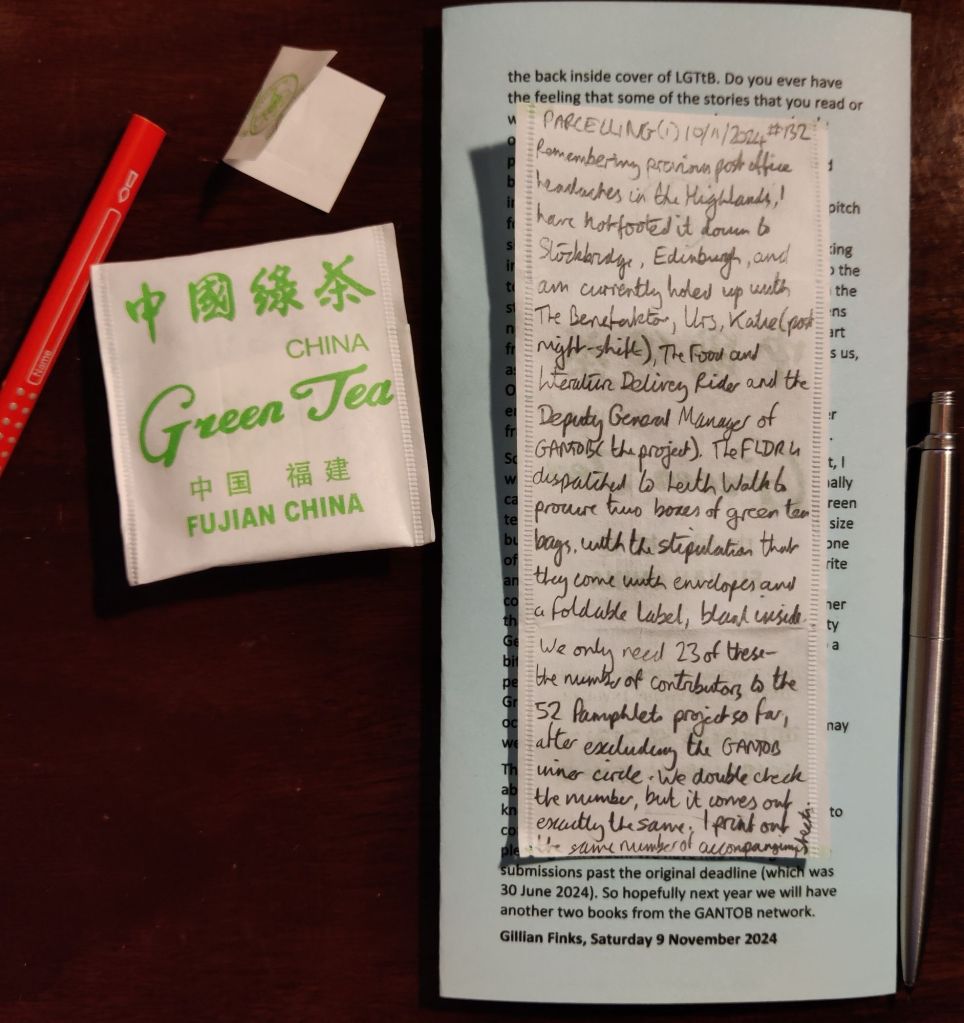 Name
中國綠茶
CHINA
Green Tea
中国 福建
FUJIAN CHINA
the back inside cover of LGTtB. Do you ever have
the feeling that some of the stories that you read or
PARCELLING (1) 10/11/2024 #132
Remembering previous post office
headaches in the Highlands, I
have hotfooted it down to
Stockbridge, Edinburgh, and
am currently holed up with
The Benefaktor, Urs, Katie (post
night-shift), The Food and
Literature Delivery Rider and the
Deputy General Manager of
GANTOB (the project). The FLDR is
dispatched to Leith Walk to
procure two boxes of green tea
bags, with the stipulation that
they come with envelopes and
a foldable label, blank inside.
We only need 23 of these -
the number of contributors to the
52 Pamphlets project so far,
after excluding the GANTOB
inner circle. We double check
the number, but it comes out
exactly the same. I print out
the same number of accompanying
sheets.
pitch
the
the
us,
size
one
may
to
submissions past the original deadline (which was
30 June 2024). So hopefully next year we will have
another two books from the GANTOB network.
Gillian Finks, Saturday 9 November 2024